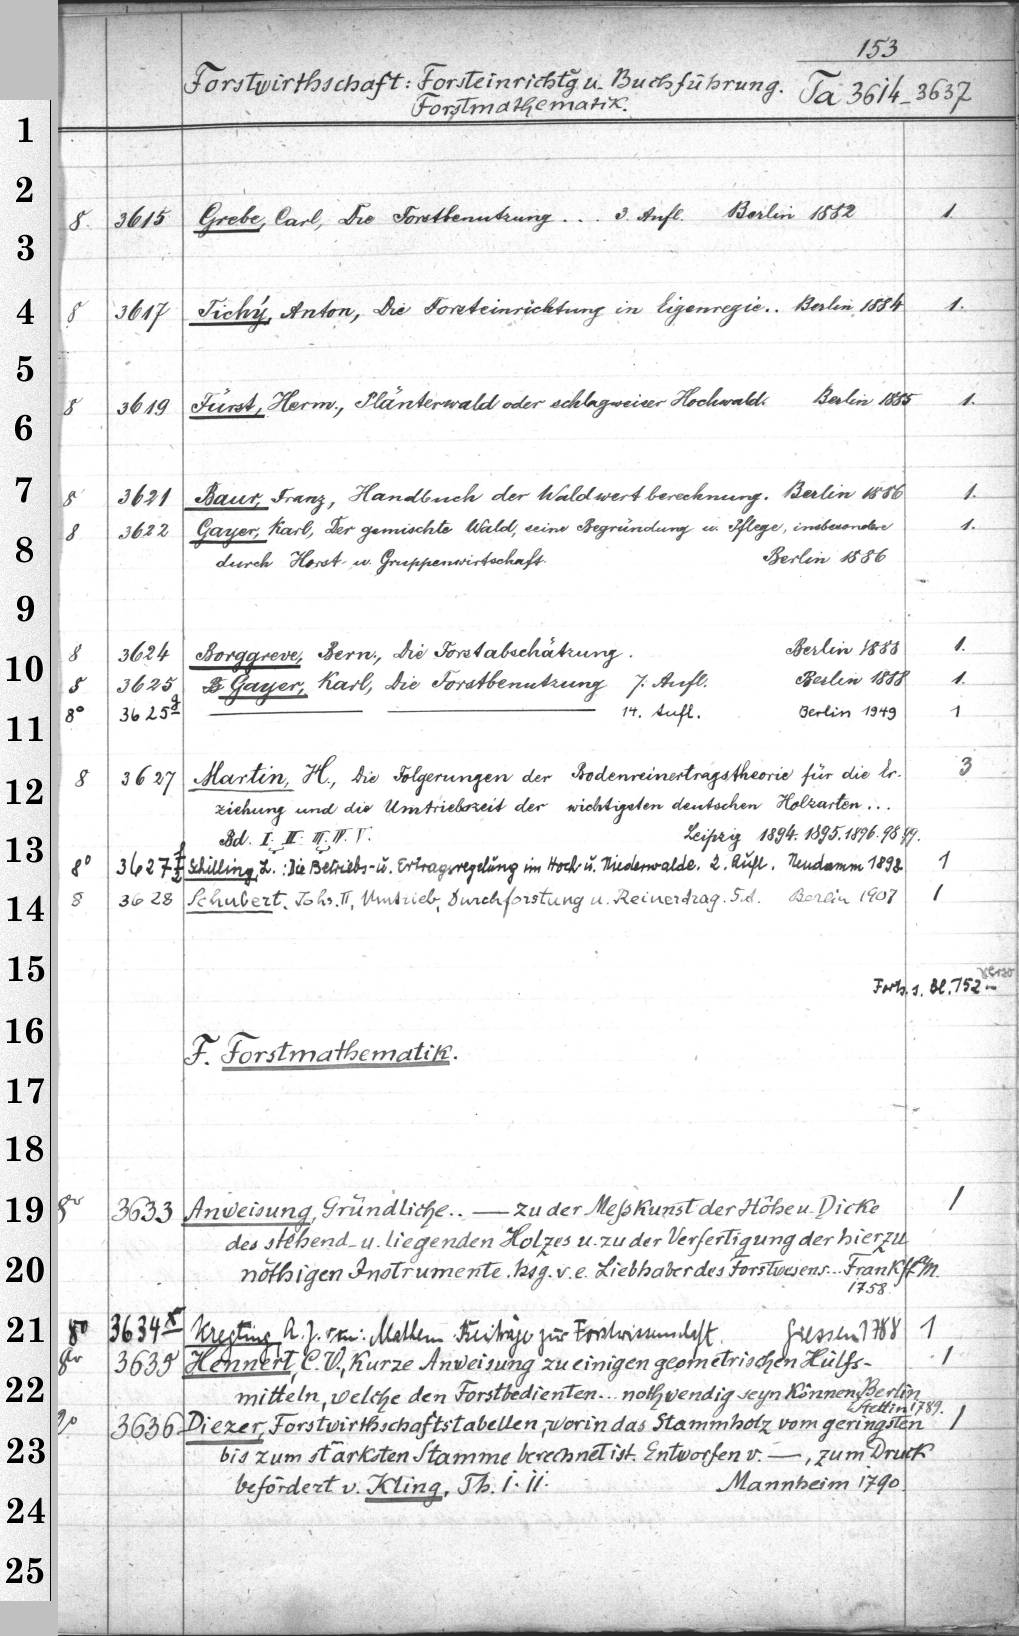 153
Forstwirthschaft: Forsteinrichtg u. Buchführung. Ta 3614-3637
Forstmathematik.
8. 3615 Grebe, Carl, Die Forstbenutzung . . . 3. Aufl. Berlin 1882 1.
8 3617 Tichý, Anton, Die Forsteinrichtung in Eigenregie.. Berlin 1884 1.
8 3619 Fürst, Herm., Plänterwald oder schlagweiser Hochwald. Berlin 1885 1.
8 3621 Baur, Franz, Handbuch der Waldwertberechnung. Berlin 1886 1.
8 3622 Gayer, Karl, Der gemischte Wald, seine Begründung u. Pflege, insbesondere 1.
durch Horst- u. Gruppenwirtschaft. Berlin 1886
8 3624 Borggreve, Bern., Die Forstabschätzung. Berlin 1888 1.
8 3625 Gayer, Karl, Die Forstbenutzung 7. Aufl. Berlin 1888 1.
8° 3625g — — 14. Aufl. Berlin 1949 1
8 3627 Martin, H., Die Folgerungen der Bodenreinertragstheorie für die Er- 3
ziehung und die Umtriebszeit der wichtigsten deutschen Holzarten...
Bd. I. II. III. IV. V. Leipzig 1894. 1895. 1896. 98. 99.
8° 3627 Schilling, L.: Die Betriebs- u. Ertragsregelung im Hoch- u. Niederwalde. 2. Aufl. Neudamm 1898 1
8 3628 Schubert, Johs. II, Umtrieb, Durchforstung u. Reinertrag. S.d. Berlin 1907 1
verso
Forts. s. Bl. 152
F. Forstmathematik.
8vo 3633 Anweisung, Gründliche.. — zu der Meßkunst der Höhe u. Dicke 1
des stehend- u. liegenden Holzes u. zu der Verfertigung der hierzu
nöthigen Instrumente. hsg. v. e. Liebhaber des Forstwesens... Frankff a/m.
1758.
8° 3634x Kregting, A. J. von: Mathem. Beiträge zur Forstwissenschaft. Giessen 1788 1
8vo 3635 Hennert, C. V., Kurze Anweisung zu einigen geometrischen Hülfs- 1
mitteln, welche den Forstbedienten... nothwendig seyn können. Berlin
u. Stettin 1789.
3636 Diezer, Forstwirthschaftstabellen, worin das Stammholz vom geringsten 1
bis zum stärksten Stamme berechnet ist. Entworfen v. —, zum Druck
befördert v. Kling, Th. I. II. Mannheim 1790.
1
2
3
4
5
6
7
8
9
10
11
12
13
14
15
16
17
18
19
20
21
22
23
24
25